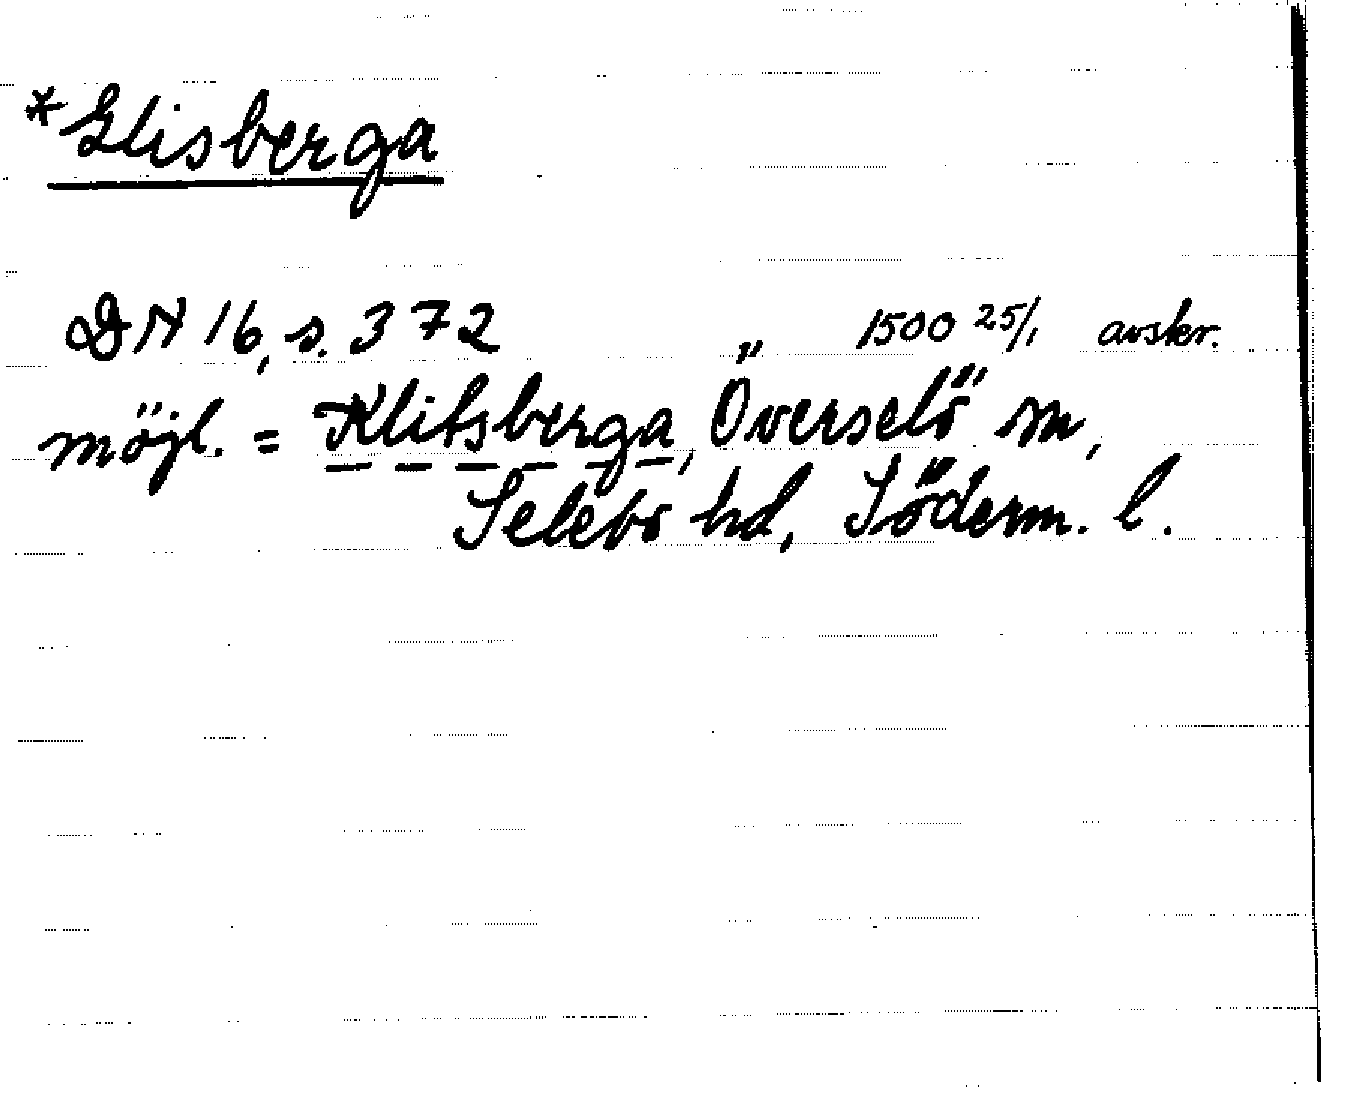 *Glisberga
DN 16, s. 372 1500 25/1 avskr.
möjl. = Klitsberga, Överselö sn,
Selebo hd, Söderm. l.